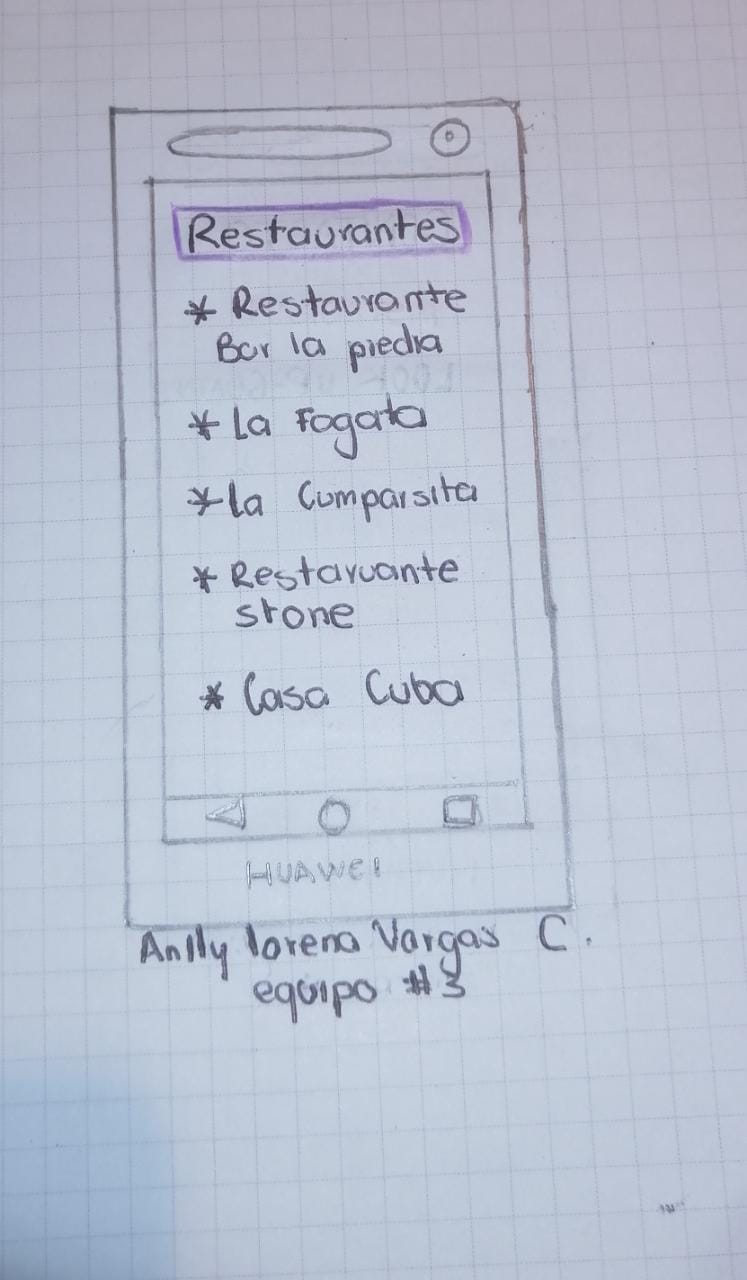 Restaurantes
* Restaurante
Bar la piedra
* La Fogata
* La Cumparsita
* Restaruante
stone
* Casa Cuba
HUAWEI
Anlly lorena Vargas C.
equipo #3